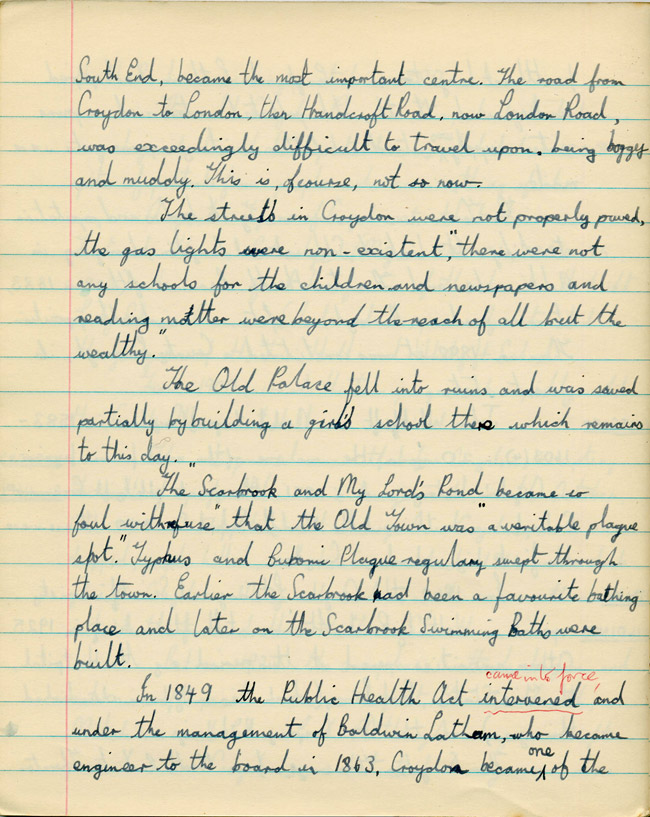 South End, became the most important centre. The road from
Croydon to London, then Handcroft Road, now London Road,
was exceedingly difficult to travel upon, being boggy
and muddy. This is, of course, not so now.
The streets in Croydon were not properly paved,
the gas lights were non-existent, "there were not
any schools for the children and newspapers and
reading matter were beyond the reach of all but the
wealthy."
The Old Palace fell into ruins and was saved
partially by building a girl's school there which remains
to this day.
The "Scarbrook and My Lord's Pond became so
foul with refuse" that the Old Town was "a veritable plague
spot." Typhus and Bubonic Plague regulary swept through
the town. Earlier the Scarbrook had been a favourite bathing
place and later on the Scarbrook Swimming Baths were
built.
came into force,
In 1849 the Public Health Act intervened and
under the management of Baldwin Latham, who became
one
engineer to the board in 1863, Croydon became of the